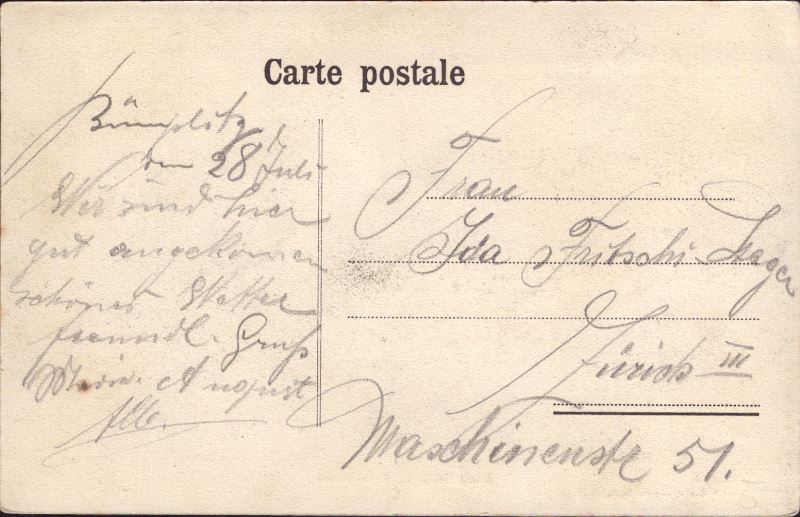 Carte postale
Bümplitz
den 28 Juli
Wir sind hier
gut angekomen
schönes Wetter
freundl. Gruss
August
Frau
Ida Fritschi-Steger
Zürich III
Maschinenstr 51.